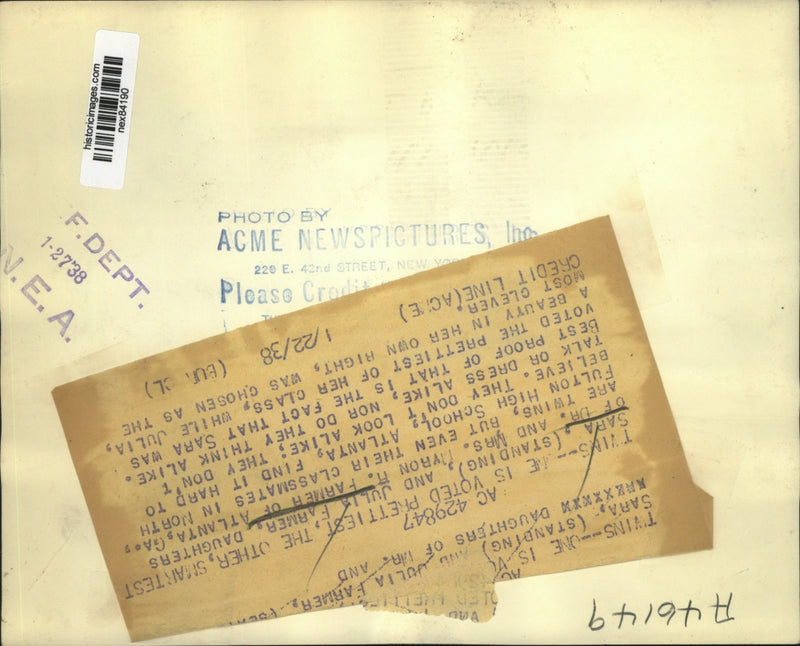 historicimages.com
nex84190
F. DEPT.
1-27 38
N. E. A.
PHOTO BY
ACME NEWSPICTURES, Inc.
220 E. 42nd STREET, NEW YORK
Please Credit
TWINS--ONE IS
SARA, (STANDING) AND JULIA FARMER,
XXXXXXXX DAUGHTERS OF MR. AND
AC 429847
TWINS--ONE IS VOTED PRETTIEST, THE OTHER, SMARTEST
SARA, (STANDING), AND JULIA FARMER, DAUGHTERS
OF DR. AND MRS. MYRON H. FARMER OF ATLANTA,GA.,
ARE TWINS, BUT EVEN THEIR CLASSMATES IN NORTH
FULTON HIGH SCHOOL, ATLANTA, FIND IT HARD TO
BELIEVE. THEY DON'T LOOK ALIKE. THEY DON'T
TALK OR DRESS ALIKE, NOR DO THEY THINK ALIKE.
BEST PROOF OF THAT, IS THE FACT THAT SARA WAS
VOTED THE PRETTIEST OF HER CLASS, WHILE SARA JULIA,
A BEAUTY IN HER OWN RIGHT, WAS CHOSEN AS THE
MOST CLEVER.
CREDIT LINE(ACME) 1/22/38
A46149